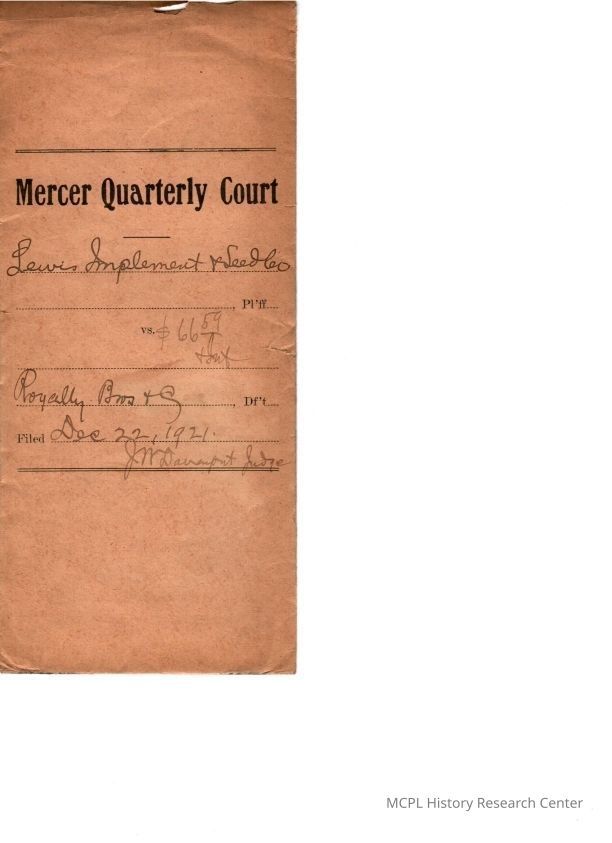 Mercer Quarterly Court
Lewis Implement & Seed Co
Pl'ff.
vs. $66 59
Royalty Bros & Co
Df't.
Filed Dec 22, 1921.
J W Davenport Judge
MCPL History Research Center